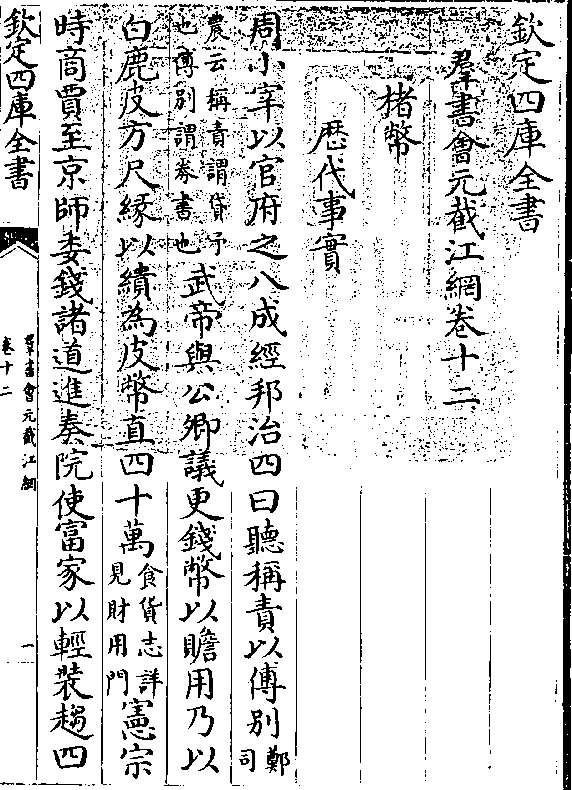 欽定四庫全書
羣書會元截江網卷十二
楮幣
歴代事實
周小宰以官府之八成經邦治四曰聽稱責以傅別鄭司
農云稱責謂貸予也傅別謂券書也武帝與公卿議更錢幣以贍用乃以
白鹿皮方尺緣以繢為皮幣直四十萬食貨志詳見財用門憲宗
時商賈至京師委錢諸道進奏院使富家以輕装趨四
欽定四庫全書
羣書會元截江網
卷十二
一